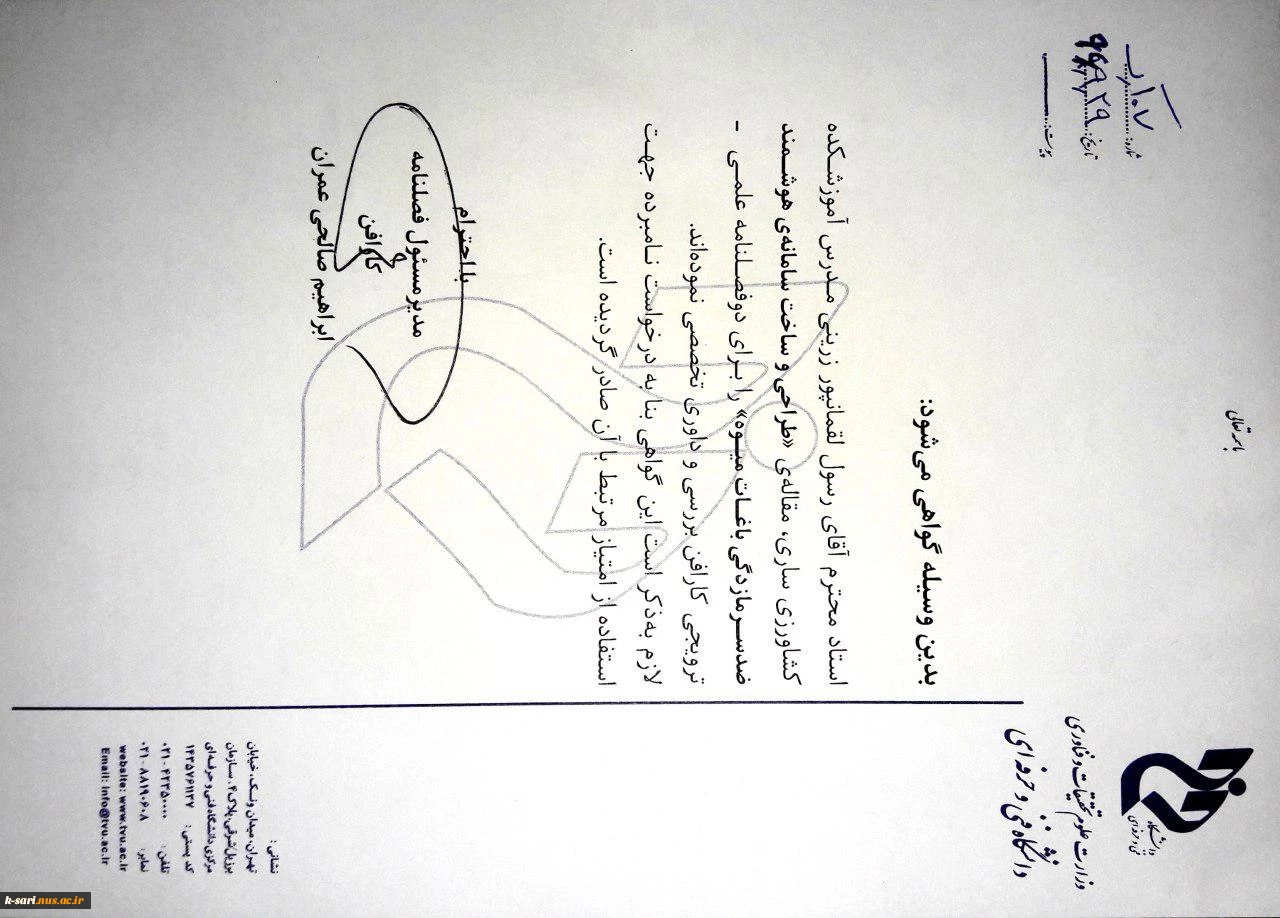 باسمه تعالی
شماره: ۱۰۷/آپ
تاریخ:
پیوست:
وزارت علوم تحقیقات و فناوری
دانشگاه فنی و حرفه‌ای
دانشگاه
فنی و حرفه‌ای
بدین وسیله گواهی می‌شود:
استاد محترم آقای رسول لقمانپور زرینی مدرس آموزشکده
کشاورزی ساری، مقاله‌ی «طراحی و ساخت سامانه‌ی هوشمند
ضدسرمازدگی باغات میوه» را برای دوفصلنامه علمی -
ترویجی کارافن بررسی و داوری تخصصی نموده‌اند.
لازم به‌ذکر است این گواهی بنا به درخواست نامبرده جهت
استفاده از امتیاز مرتبط با آن صادر گردیده است.
با احترام
مدیرمسئول فصلنامه
کارافن
ابراهیم صالحی عمران
نشانی:
تهران، میدان ونک، خیابان
برزیل شرقی، پلاک ۴، سازمان
مرکزی دانشگاه فنی و حرفه‌ای
کد پستی: ۱۴۳۵۷۶۱۱۳۷
تلفن: ۰۲۱-۴۲۳۵۰۰۰۰
نمابر: ۰۲۱-۸۸۱۹۰۶۰۸
website: www.tvu.ac.ir
Email: info@tvu.ac.ir
k-sari.nus.ac.ir